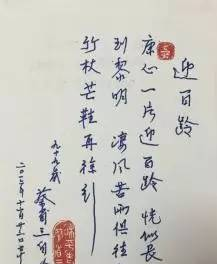 迎百龄
康心一片迎百龄 恍似长
到黎明 凄风苦雨俱往
竹杖芒鞋再徐行
九十九岁
蔡
二〇一